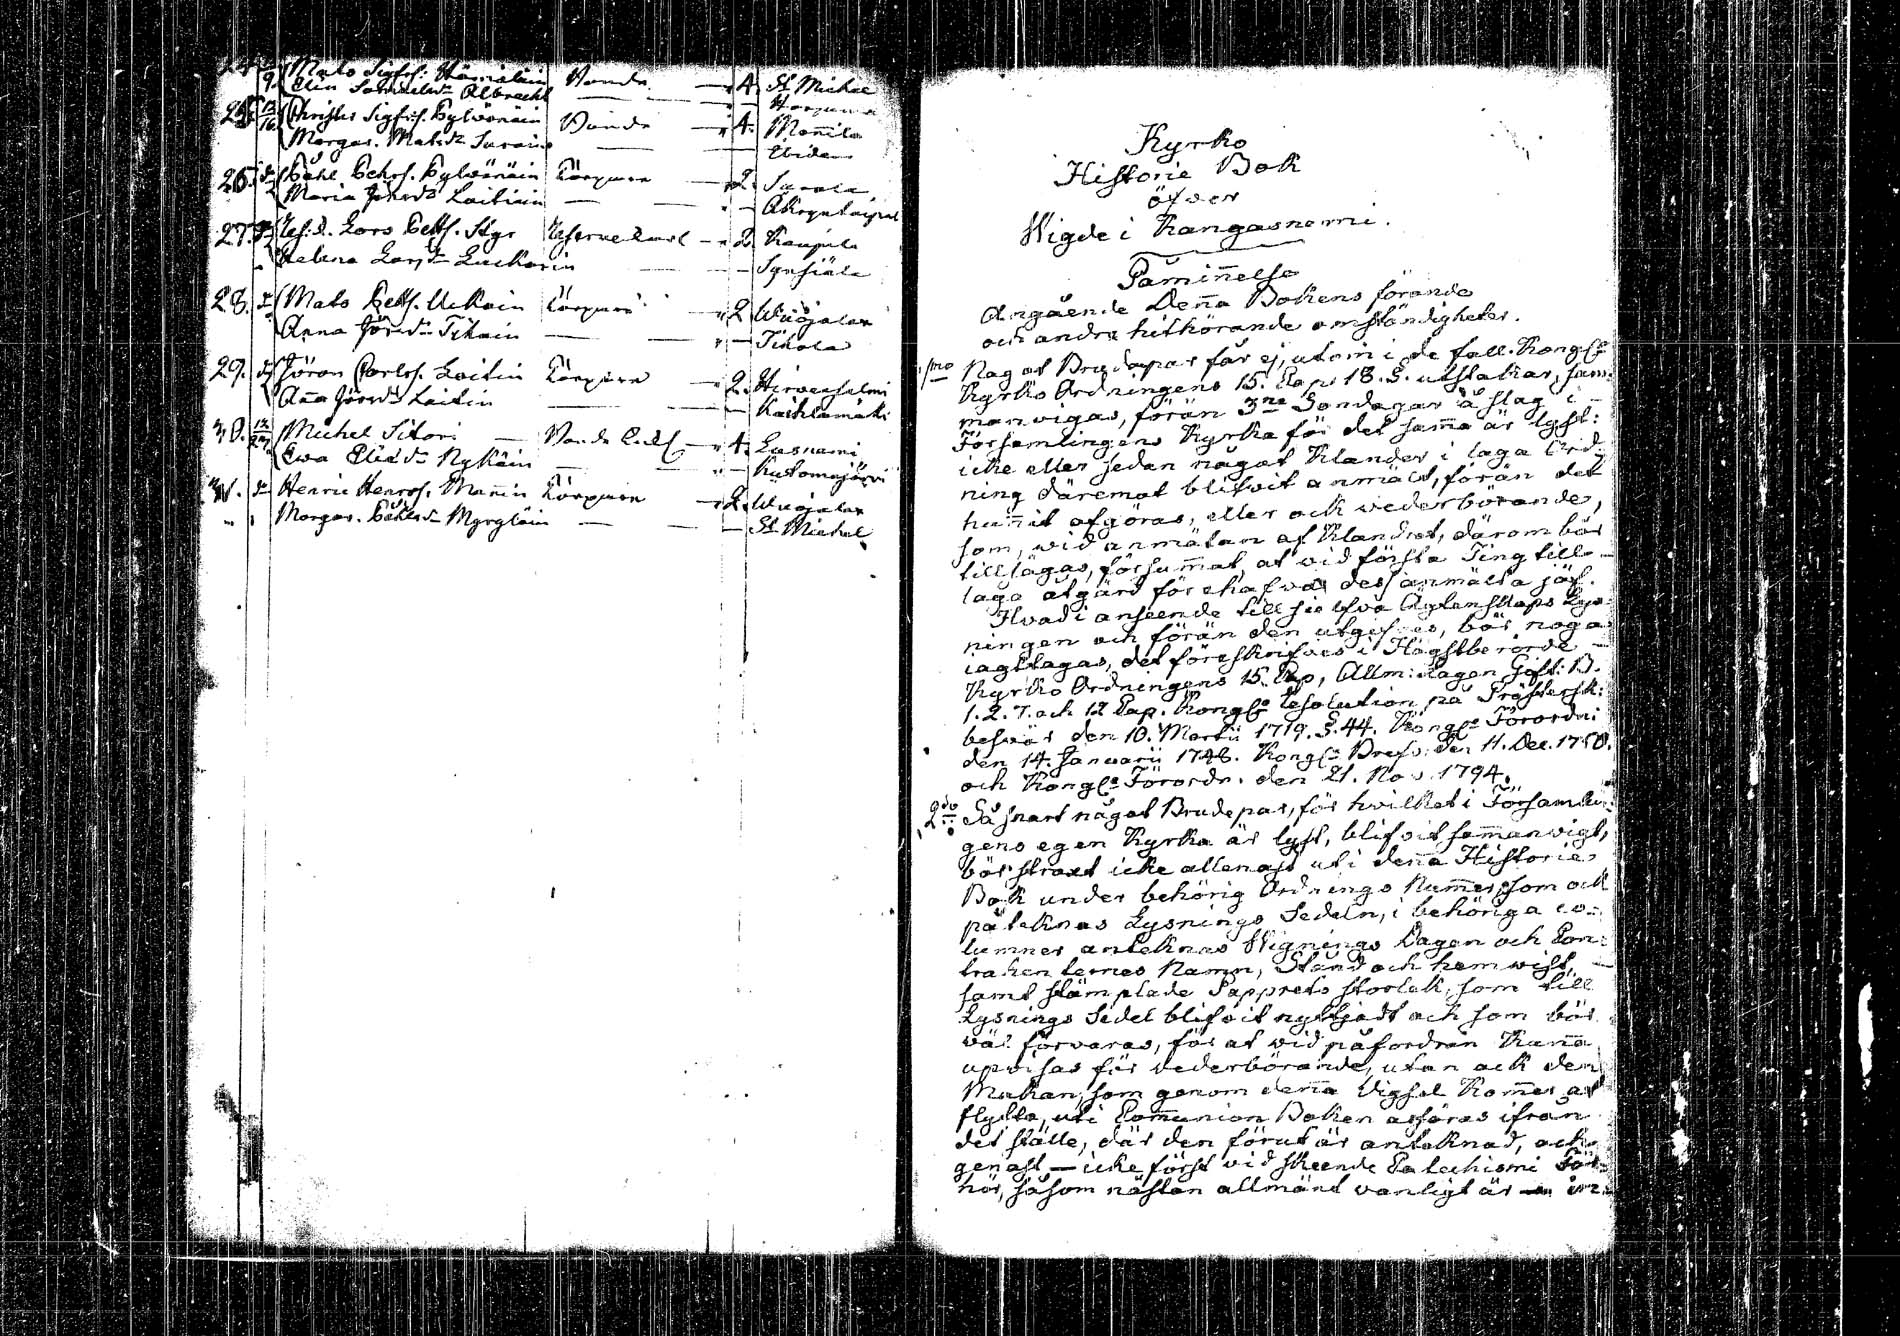 24. Mats Sigfrs: Hämäläin Bonde — 4. St Michel
9. Elin Samuelsdr Albrecht — —
25. 12/16 Christer Sigfrs. Pylvönäin Bonde — 4. Mannila
Margar. Matsdr Surain — —
26. dr Påhl Pehrs. Pylvönäin Torpare — 2. Surola
Maria Jörsdr Laitiain — —
27. dr Ref. d. Lars Pettrs. Styr Reservekarl — 2. Kaupila
Helena Larsdr Zackarin — — Synsiälä
28. dr Mats Pettrs. Uckoin Torpare — 2. Wuojalax
Anna Jörsdr Tikain — — Tikala
29. dr Jöran Carlss. Laitin Torpare — 2. Hirvensalmi
Ana Jörsdr Laitin — — Kaihlamäki
30. 12/27 Michel Sitari — Bonde — 4. Lusnemi
Ewa Eliædr Nykäin — — Kutemajärvi
31. dr Henric Henrcs. Mannin Torpare — 2. Wuojalax
" " Margar. Påhlsdr Myryläin — — St Michel
Kyrko
Historie Bok
öfver
Wigde i Kangasnemi.
Påminnelse
Angående Denna Bokens förande
och andra hithörande omständigheter.
1mo Nagot Brudepar får ej, utom i de fall. Kongl.
Kyrko Ordningens 15. Cap. 18. §. utstakar, sam=
manvigas, förän 3ne Söndagar å slag i
Församlingens Kyrka för det samma är lyst:
icke eller sedan något Klander i laga Ord=
ning däremot blifvit anmält, förän det
hunnit afgöras, eller ock vederbörande,
som, wid anmälan af Klandret, därom bör
tillsägas, försummat, at vid första Ting till
laga åtgärd förehafva dess anmälta jäf.
Hvad i anseende till sielfva Ägtenskaps Lys=
ningen och förän den utgifves, bör noga
iagttagas, det föreskrifves i Högstberörde
Kyrko Ordningens 15. Cap, Allm: Lagen Gift: B.
1. 2. 7. och 12 Cap. Kongl. Resolution på Prästersk:
besvär den 10. Martii 1719. §. 44. Kongl. Förordn:
den 14. Januarii 1746. Kongl. Bref. den 11. Dec. 1750.
och Kongl. Förordn. den 21. Nov. 1794.
2do Så snart något Brudepar, för hvilket i Församlin=
gens egen Kyrka är lyst, blifvit samanvigt,
bör straxt icke allenast uti denna Historie
Bok under behörig Ordnings Nummer, som ock
påteknas Lysnings Sedeln, i behöriga co=
lumner anteknas Wignings Dagen och Con=
trahenternes Namn, Stånd och hemvist,
samt stämplade Papprets storlek, som till
Lysnings Sedel blifvit nyttjadt och som bör
väl förvaras, för at wid påfordran kunna
upvisas för vederbörande, utan ock den
Makan, som genom denna Vigsel kommer at
flytta, uti Communion Boken afföras ifrån
det ställe, där den förut är anteknad, och
genast — icke först vid skeende Catechismi För=
hör, såsom nästan allmänt vanligt är —